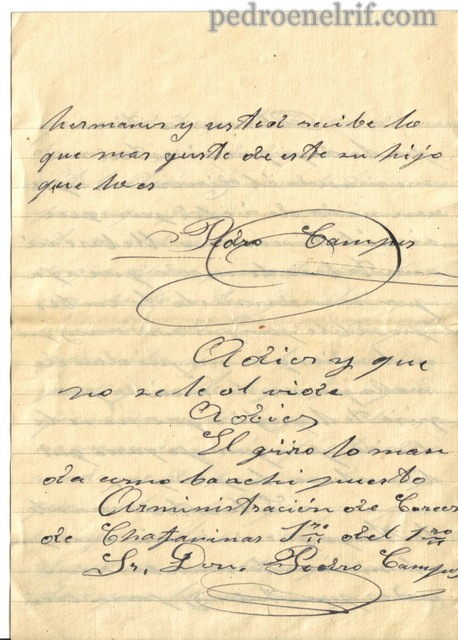 pedroenelrif.com
hermanos y usted recibe lo
que mas guste de este su hijo
que lo es
Pedro Campos
Adios y que
no se le olvide
Adios
El giro lo man
da como ba achi puesto
Arministración de Correos
de Chafarinas 1ro del 1ro
Sr. Don. Pedro Campos